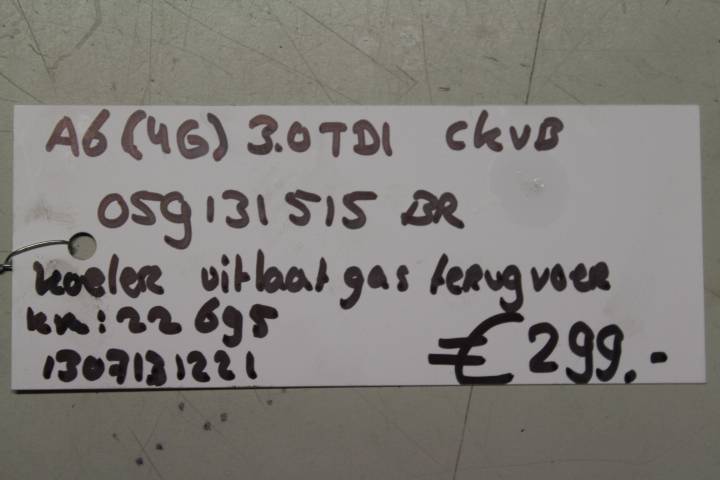 A6 (4G) 3.0 TDI CKVB
059131515 BR
koeler uitlaat gas terugvoer
km: 22 695
1307131221 € 299.-